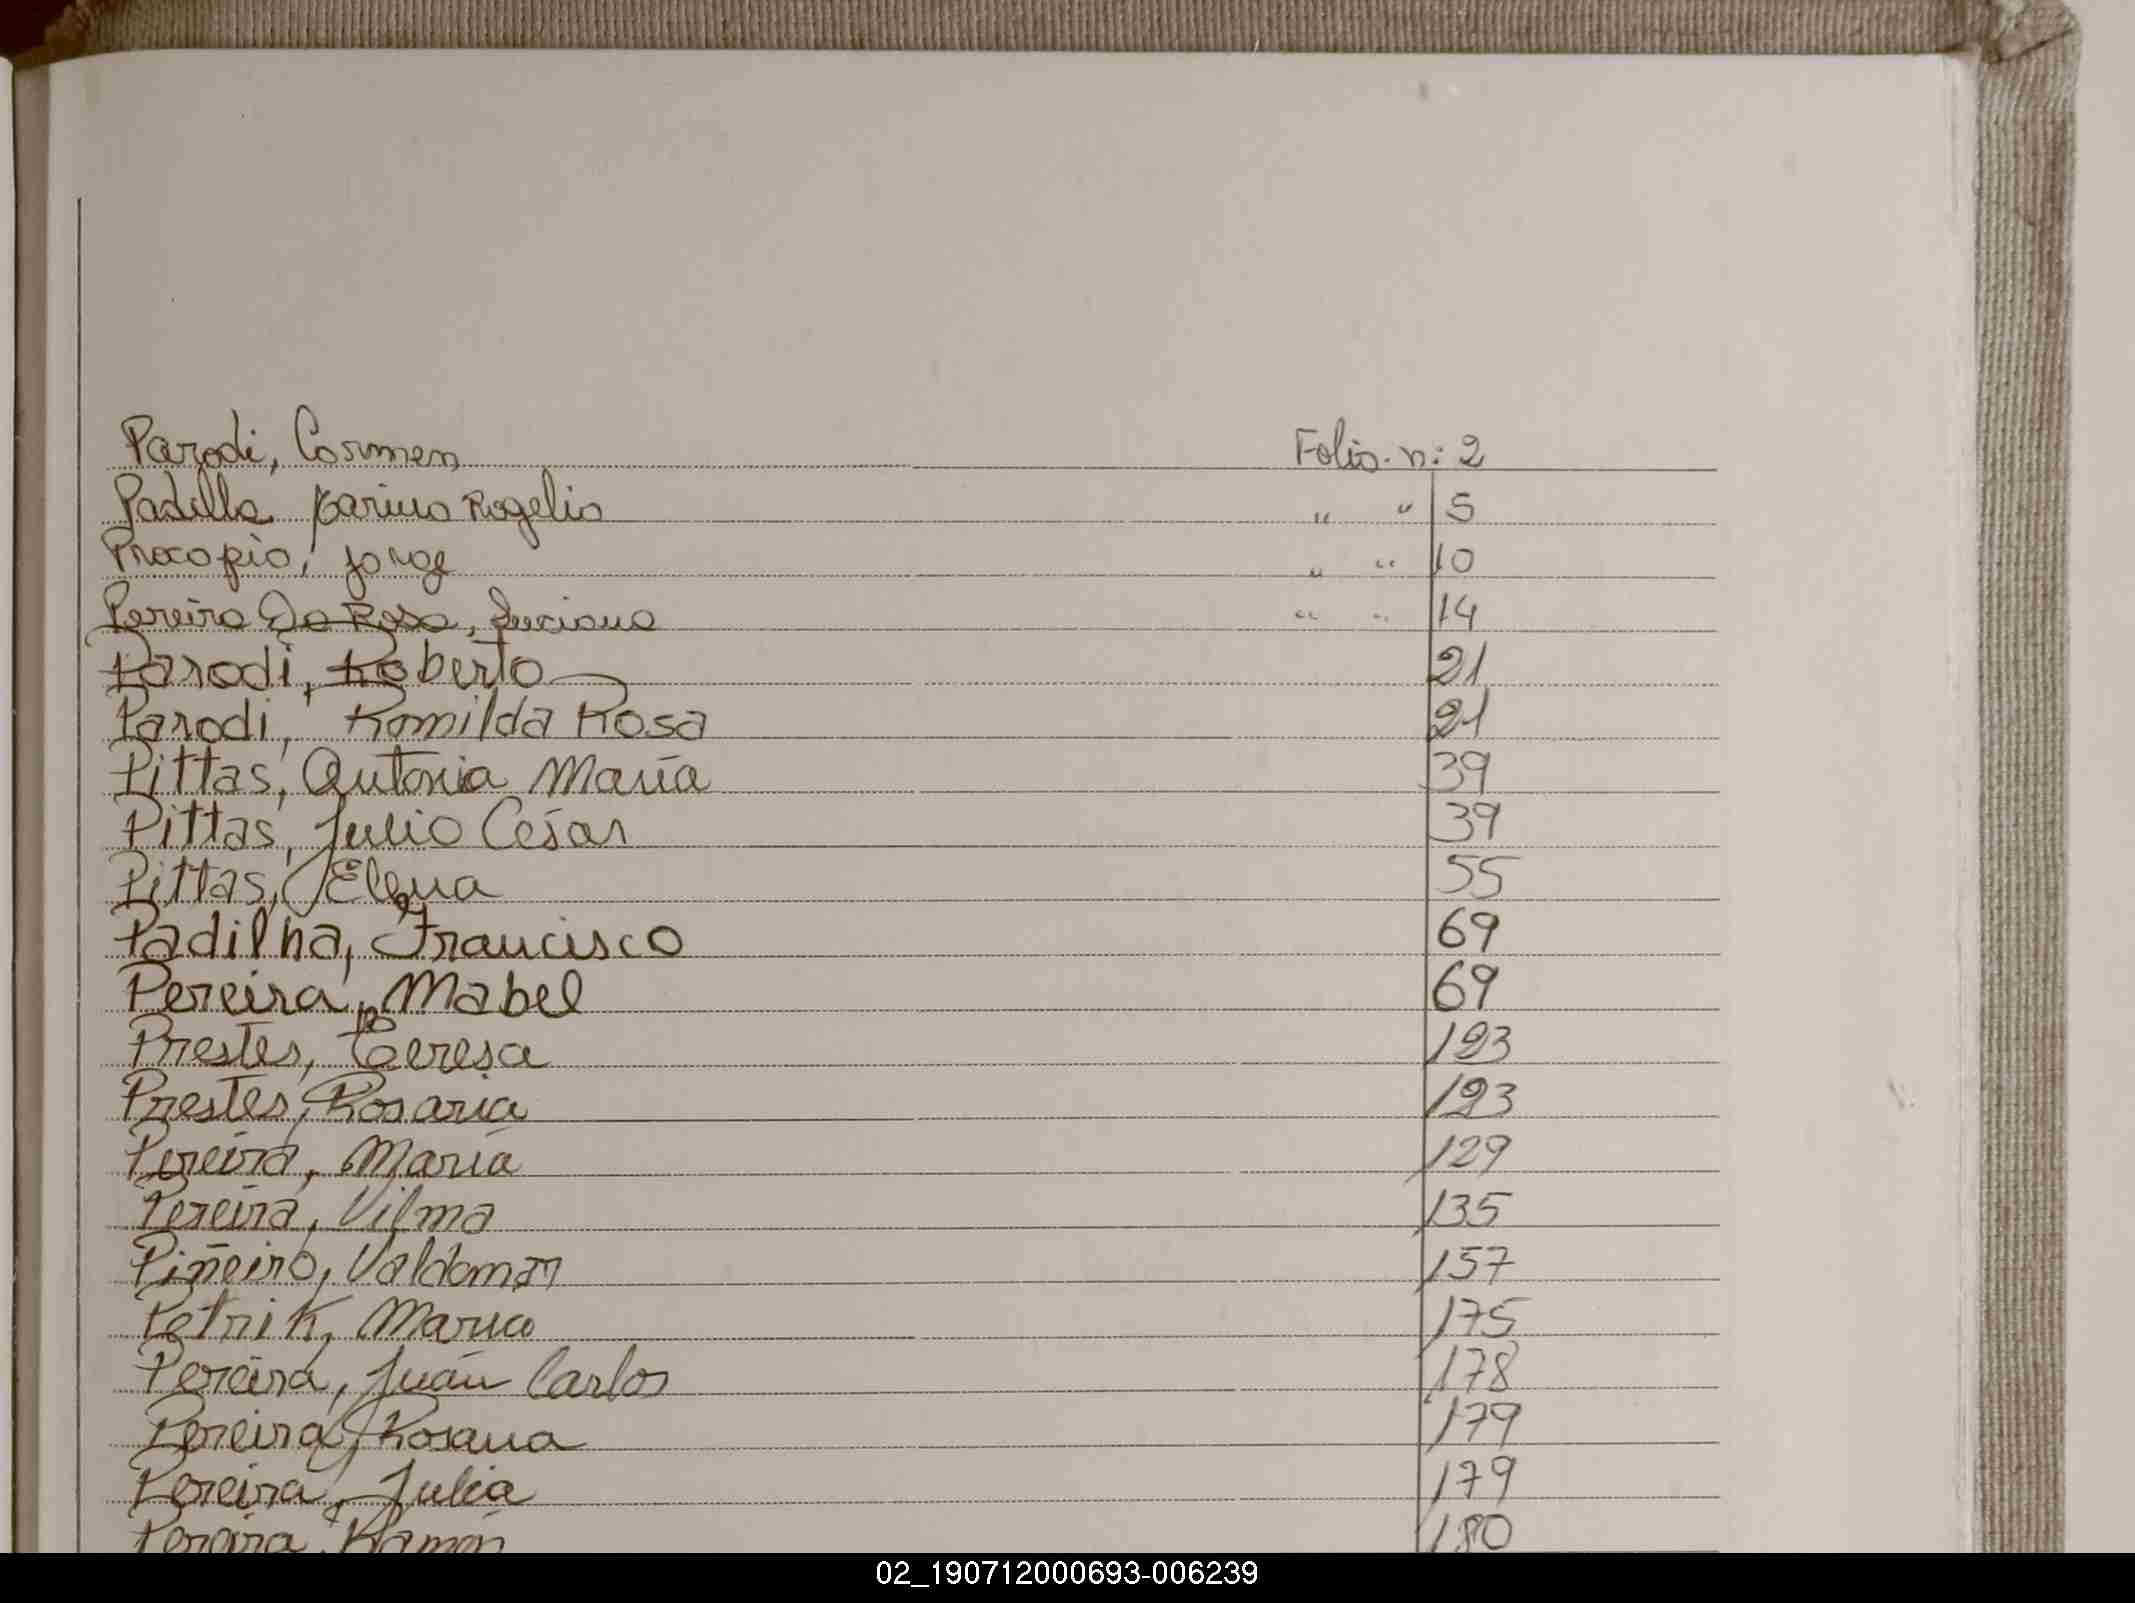 Parodi, Carmen Folio n: 2
Padilla Karina Rogelio " " 5
Procopio, Jorge " " 10
Pereira Da Rosa, Luciana " " 14
Parodi, Roberto 21
Parodi, Romilda Rosa 21
Pittas, Antonia María 39
Pittas, Julio César 39
Pittas, Elena 55
Padilha, Francisco 69
Pereira, Mabel 69
Prestes, Teresa 123
Prestes, Rosaria 123
Pereira, María 129
Pereira, Vilma 135
Piñeiro, Valdomar 157
Petrik, Maria 175
Pereira, Juan Carlos 178
Pereira, Rosana 179
Pereira, Julia 179
Pereira, Ramón 180
02_190712000693-006239